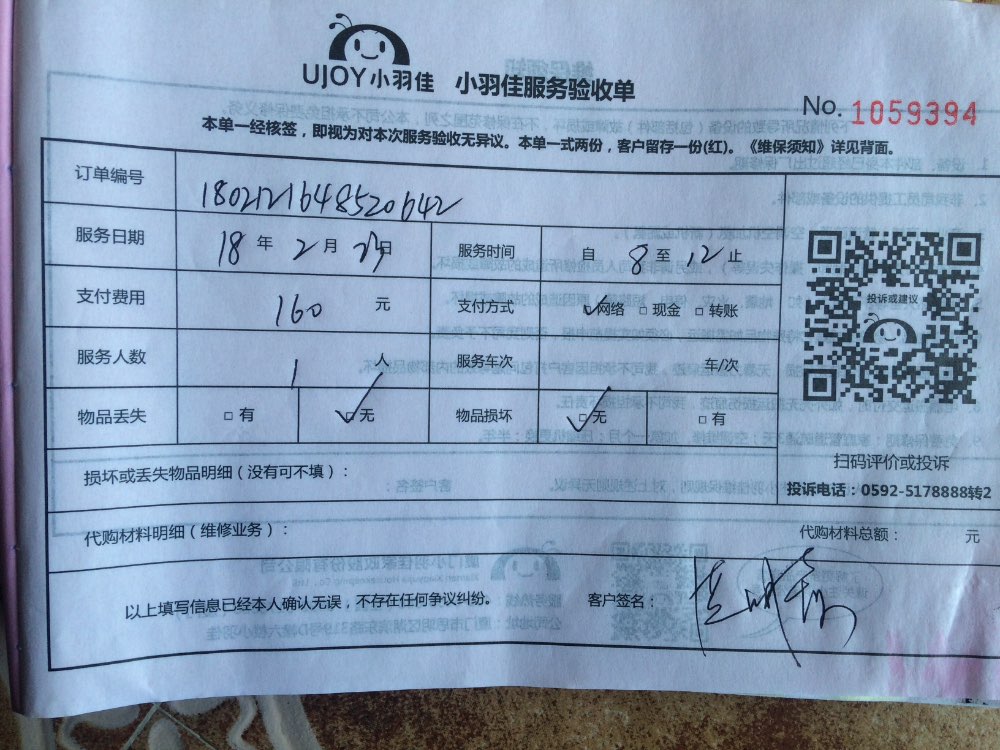 UJOY小羽佳 小羽佳服务验收单
No. 1059394
本单一经核签，即视为对本次服务验收无异议。本单一式两份，客户留存一份(红)。《维保须知》详见背面。
订单编号 1802121648520642
服务日期 18 年 2 月 23 日 服务时间 自 8 至 12 止
支付费用 160 元 支付方式 □网络 □ 现金 □ 转账
投诉或建议
服务人数 1 人 服务车次 车/次
物品丢失 □ 有 □ 无 物品损坏 □ 无 □ 有
扫码评价或投诉
损坏或丢失物品明细（没有可不填）：
投诉电话：0592-5178888转2
代购材料明细（维修业务）： 代购材料总额： 元
以上填写信息已经本人确认无误，不存在任何争议纠纷。 客户签名：